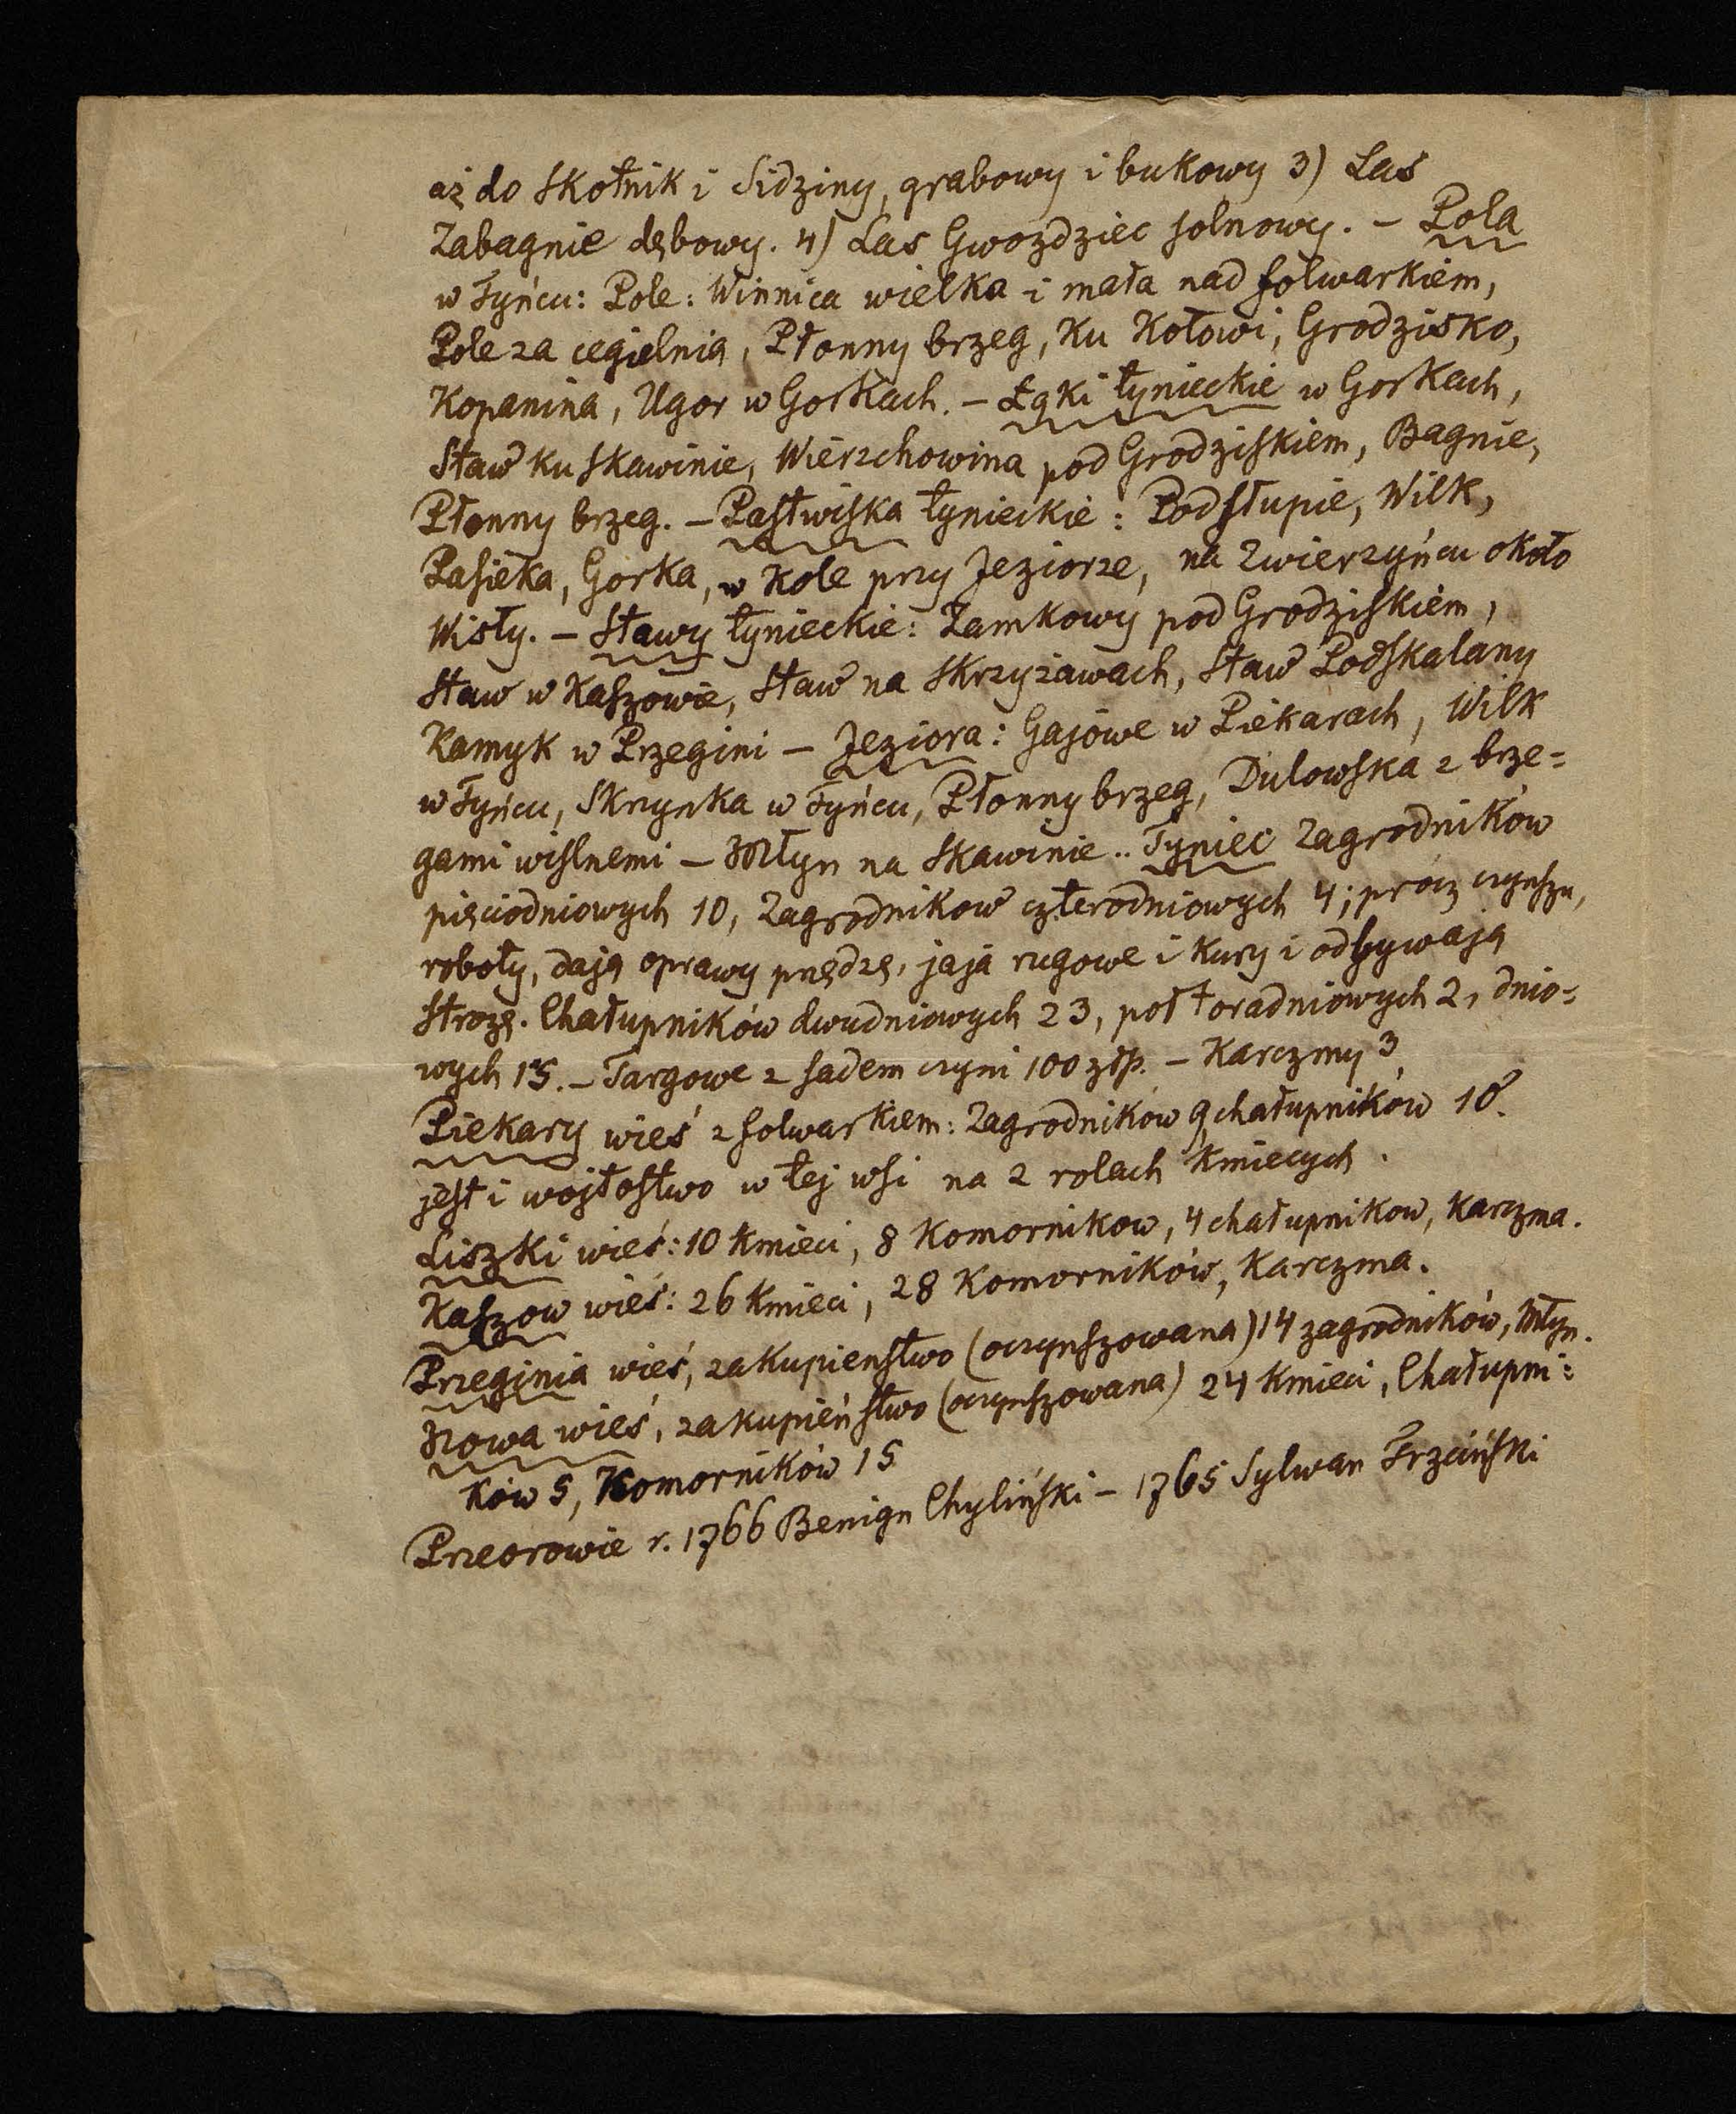 aż do Skotnik i Sidziny, grabowy i bukowy 3) Las
Zabagnie dębowy. 4) Las Gwozdziec solnowy. – Pola
w Tyńcu: Pole: Winnica wielka i mała nad folwarkiem,
Pole za cegielnią, Płonny brzeg, Ku Kołowi, Grodzisko,
Kopanina, Ugor w Gorkach. – Łąki tynieckie w Gorkach,
Staw ku Skawinie, Wierzchowina pod Grodziskiem, Bagnie,
Płonny brzeg. – Pastwiska tynieckie: Podstupie, Wilk,
Pasieka, Gorka, w Kole przy Jeziorze, na Zwierzyńcu około
Wisły. – Stawy tynieckie: Zamkowy pod Grodziskiem,
Staw w Kaszowie, Staw na Skrzyżawach, Staw Podskalany
Kamyk w Przegini – Jeziora: Gajowe w Piekarach, Wilk
w Tyńcu, Skrzynka w Tyńcu, Płonny brzeg, Dulowska z brze=
gami wiślnemi – Młyn na Skawinie.. Tyniec Zagrodników
pięciodniowych 10, Zagrodnikow czterodniowych 4; procz czynszu,
roboty, dają oprawy przędzę, jaja rugowe i kury i odbywają
Strożę. Chałupników dwudniowych 23, połtoradniowych 2, dnio=
wych 15. – Targowe z sadem czyni 100 złp. – Karczmy 3,
Piekary wieś z folwarkiem: Zagrodników 9, chałupników 18.
jest i wojtostwo w tej wsi na 2 rolach Kmiecych.
Liszki wieś: 10 Kmieci, 8 Komornikow, 4 chałupnikow, karczma.
Kaszow wieś: 26 Kmieci, 28 Komorników, Karczma.
Przeginia wieś, zakupienstwo (oczynszowana) 14 zagrodników, Młyn.
Nowa wieś, zakupieństwo (oczynszowana) 24 Kmieci, Chałupni=
ków 5, Komorników 15
Przeorowie r. 1766 Benign Chyliński – 1765 Sylwan Trzciński